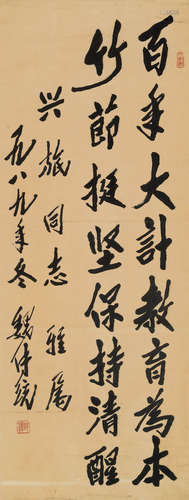 百年大計教育為本
竹節挺坚保持清醒
兴旅同志雅属
一九八九年冬 魏传统